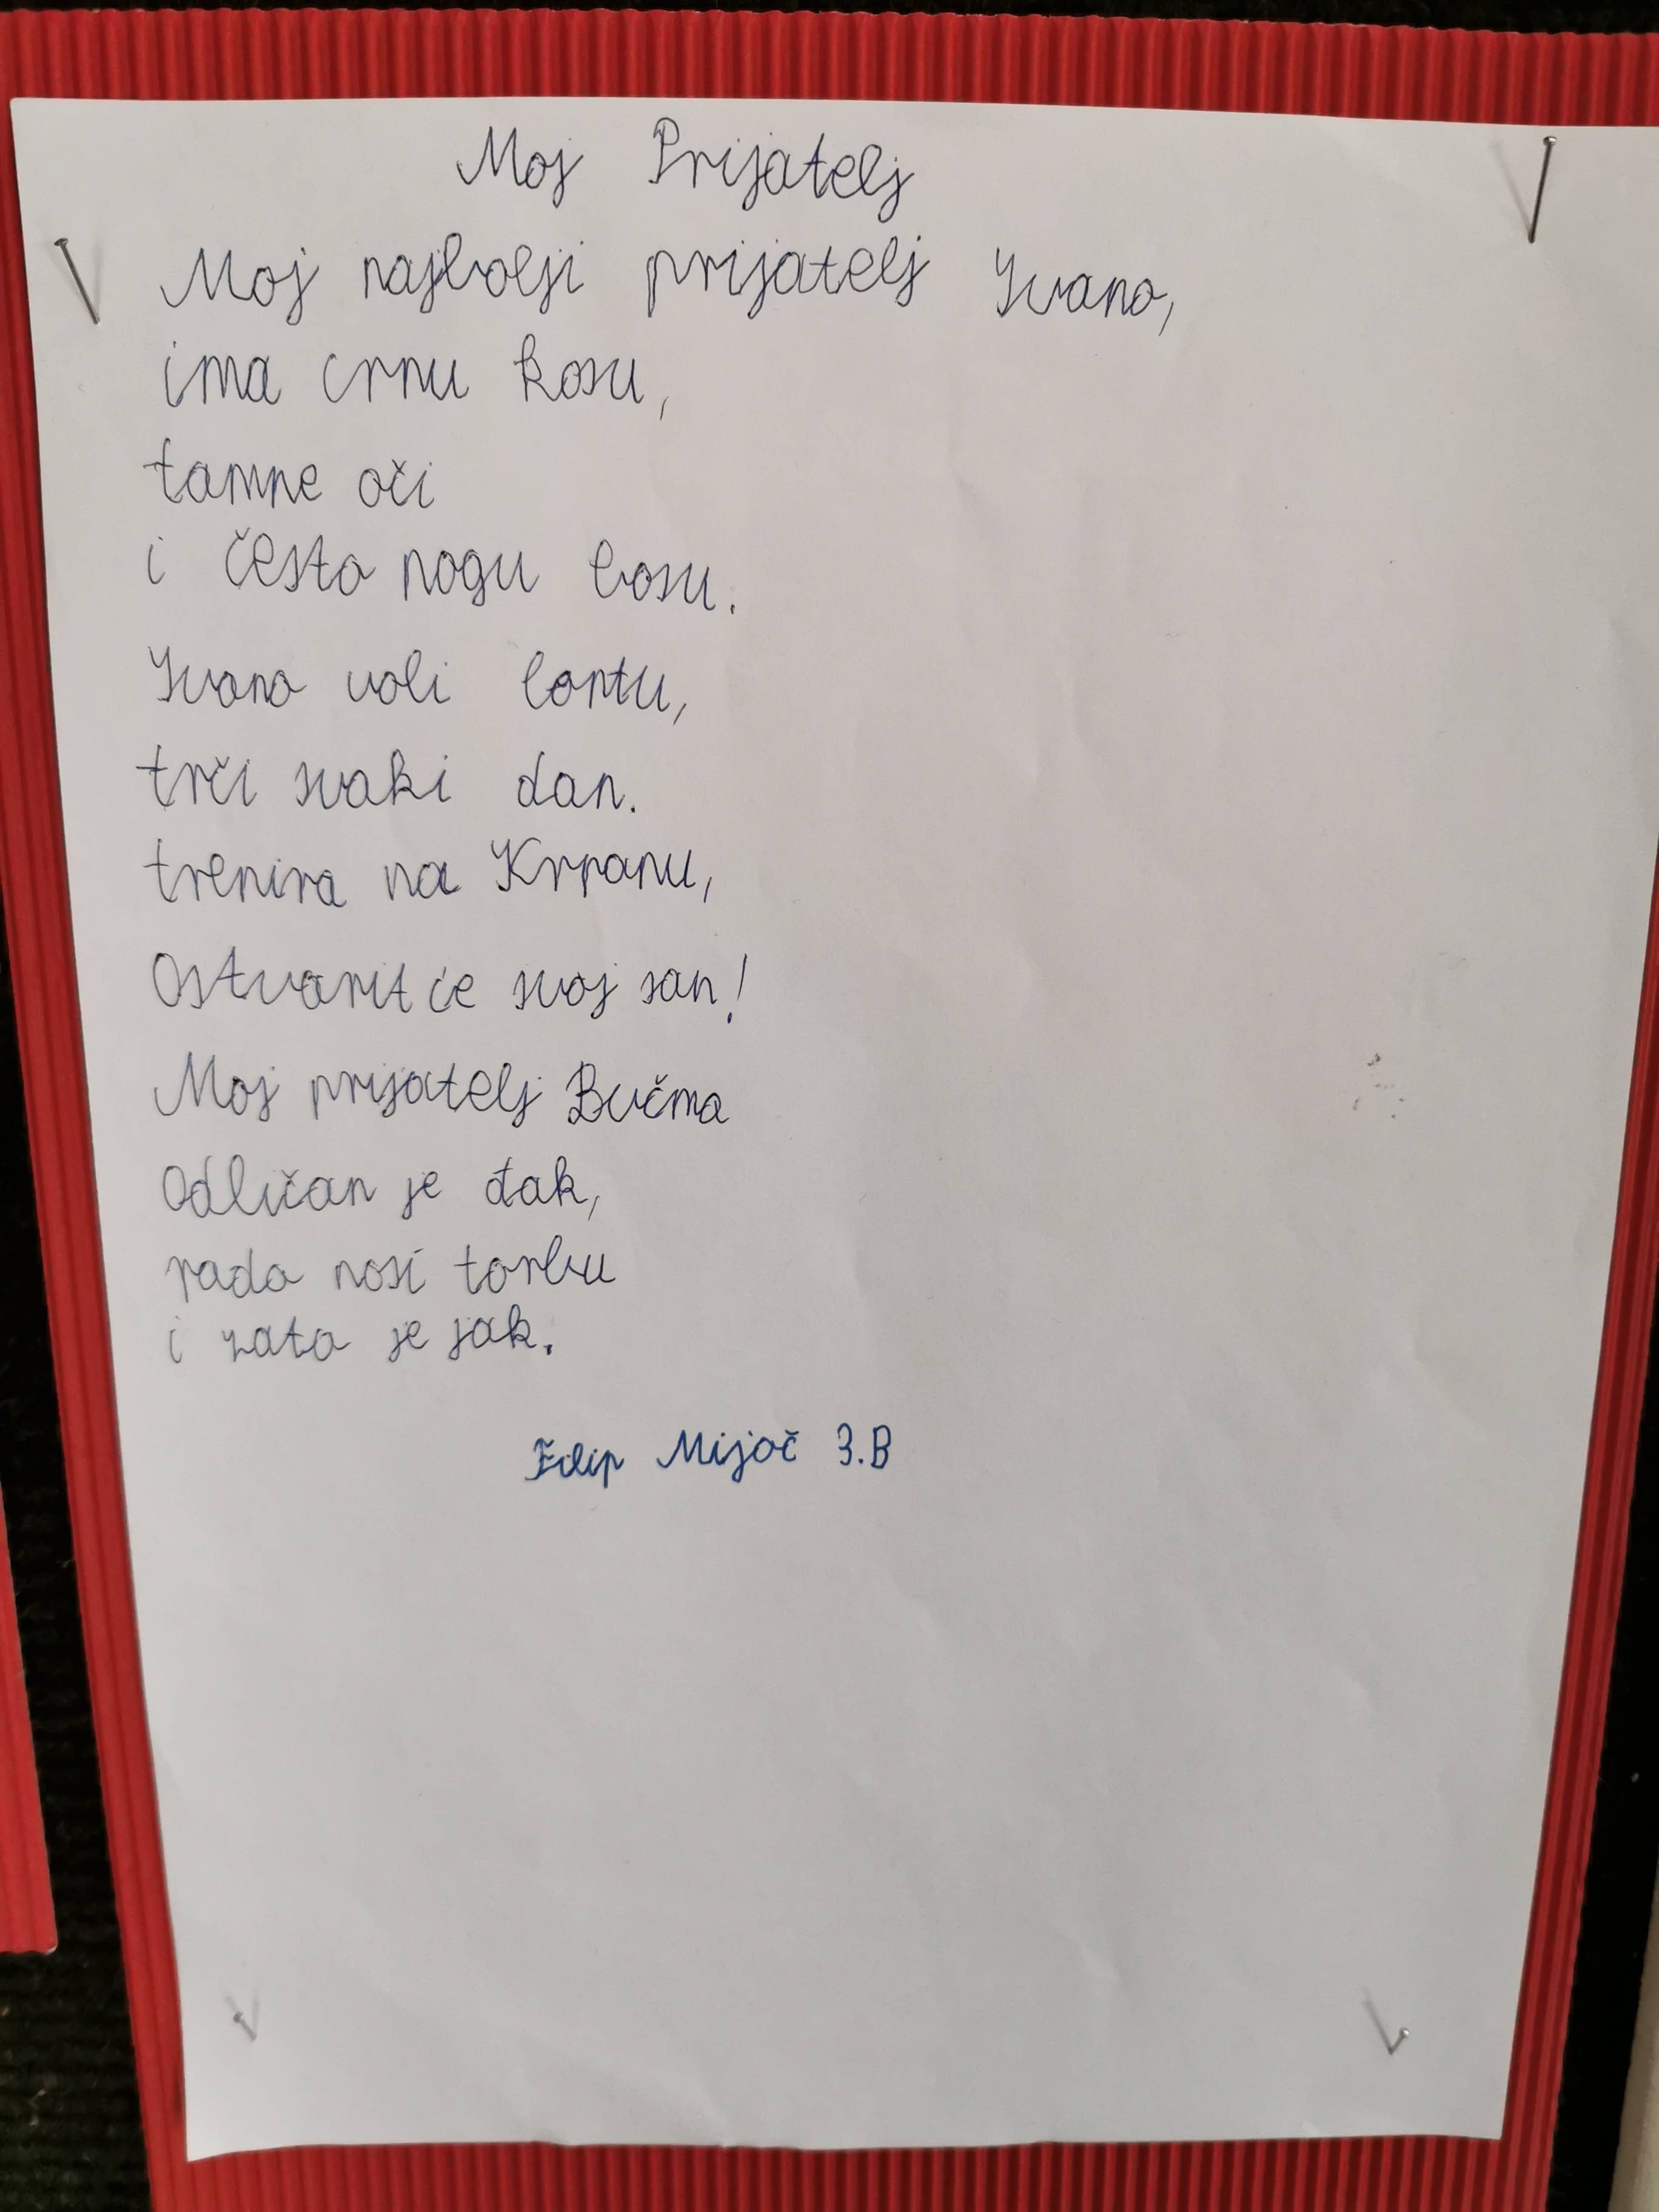 Moj Prijatelj
Moj najbolji prijatelj Ivano,
ima crnu kosu,
tamne oči
i često nogu bosu.
Ivano voli loptu,
trči svaki dan.
trenira na Krpanu,
Ostvarit će svoj san!
Moj prijatelj Bučma
Odličan je đak,
rado nosi torbu
i zato je jak.
Filip Mijoč 3.B